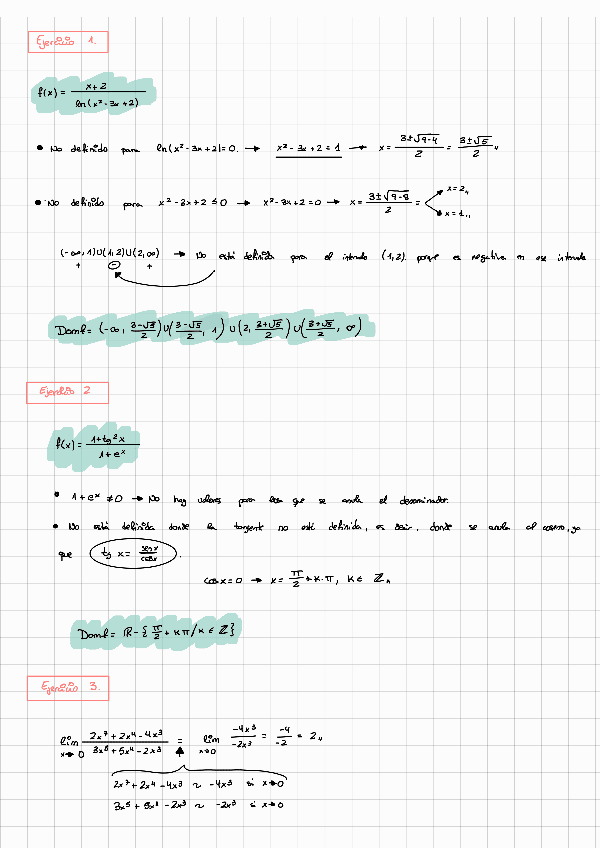 Ejercicio 1.
f(x) = x+2 / ln(x² - 3x + 2)
• No definido para ln(x² - 3x + 2) = 0. → x² - 3x + 2 = 1 → x = 3±√9-4 / 2 = 3±√5 / 2 ,,
• No definido para x² - 3x + 2 ≤ 0 → x² - 3x + 2 = 0 → x = 3±√9-8 / 2 = x = 2,, x = 1,,
(-∞, 1) U (1, 2) U (2, ∞) → No está definida para el intervalo (1,2). porque es negativa en ese intervalo
+ - +
Domf = (-∞, 3-√5 / 2) U (3-√5 / 2, 1) U (2, 3+√5 / 2) U (3+√5 / 2, ∞)
Ejercicio 2
f(x) = 1 + tg²x / 1 + eˣ
• 1 + eˣ ≠ 0 → No hay valores para los que se anula el denominador.
• No está definida donde la tangente no está definida, es decir, donde se anula el coseno, ya
que tg x = sen x / cos x .
cos x = 0 → x = π/2 + k·π, k ∈ ℤ,,
Domf = ℝ - { π/2 + kπ / k ∈ ℤ }
Ejercicio 3.
lim x→0 2x⁷ + 2x⁴ - 4x³ / 3x⁵ + 5x⁴ - 2x³ = lim x→0 -4x³ / -2x³ = -4 / -2 = 2,,
2x⁷ + 2x⁴ - 4x³ ~ -4x³ si x→0
3x⁵ + 5x⁴ - 2x³ ~ -2x³ si x→0